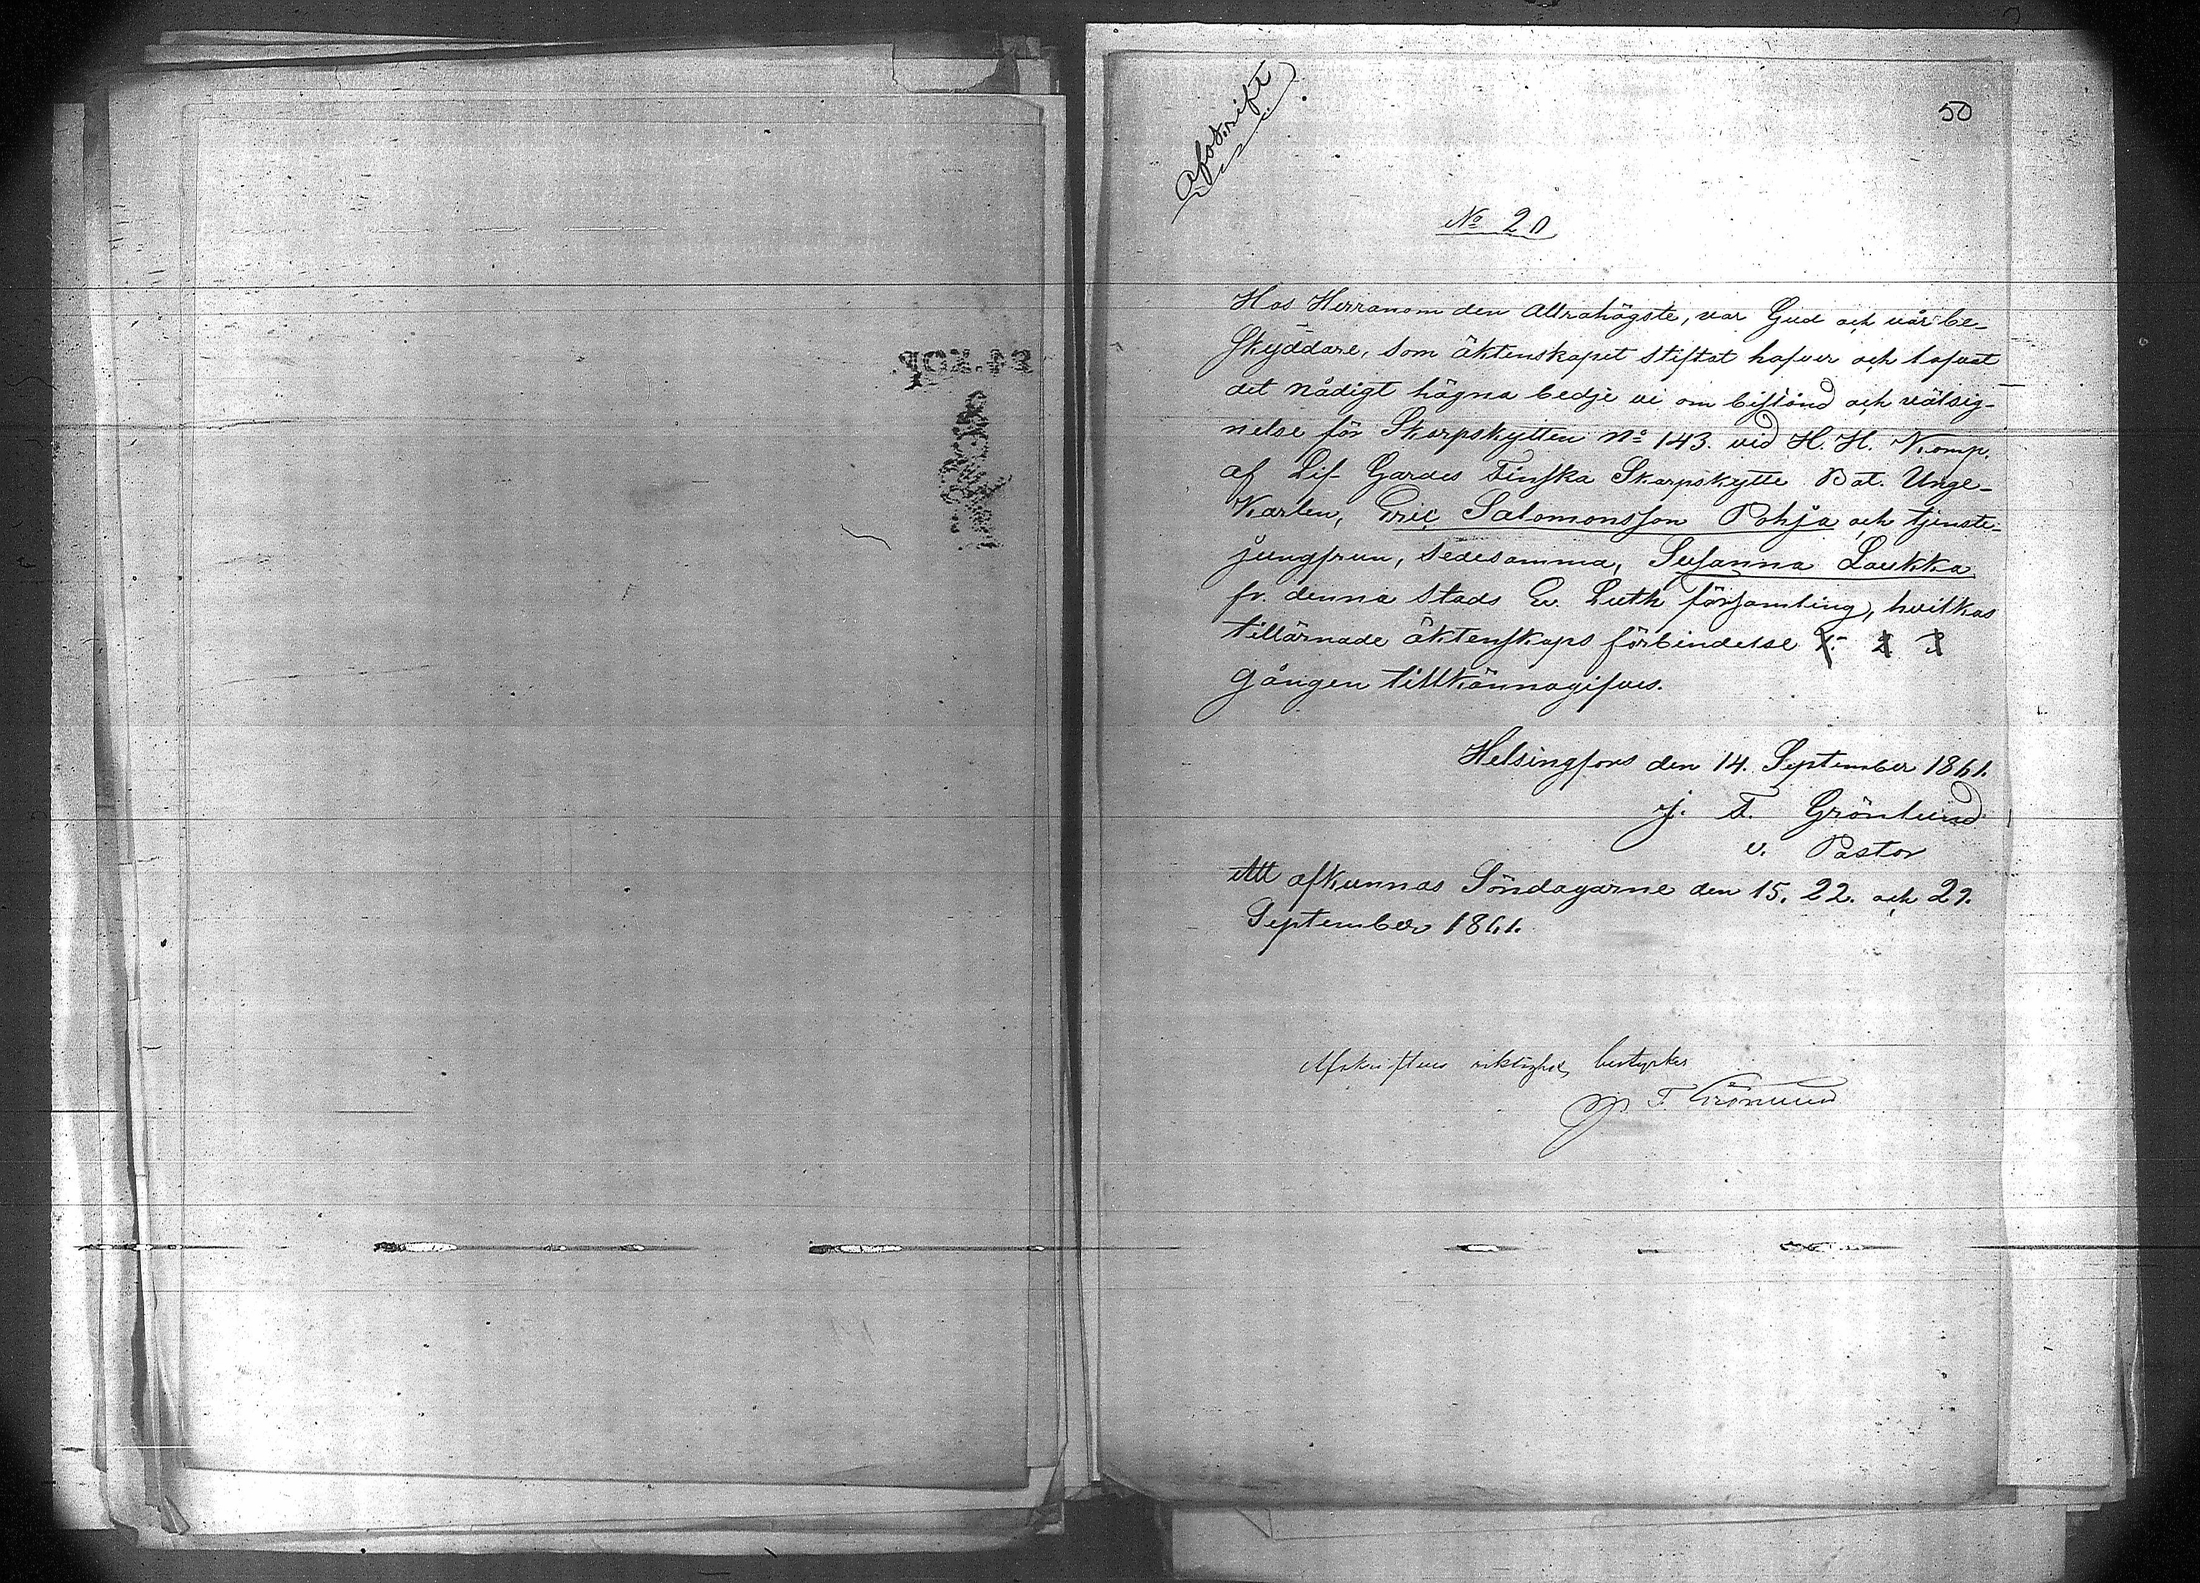 Afskrift
50
No 20
Hos Herranom den Allrahögste, vår Gud och vår be-
skyddare, som äktenskapet stiftat hafver och lofvat
det nådigt hägna bedje vi om bistånd och välsig-
nelse för Skarpskytten No 143. vid H. H. Komp.
af Lif- Gardes Finska Skarpskytte Bat. Unge-
Karlen, Eric Salomonsson Pohja och tjenste-
jungfrun, sedesamma, Susanna Laukka
fr. denna stads Ev. Luth församling, hvilkas
tillärnade äktenskaps förbindelse 1. 2 3
gången tillkännagifves.
Helsingfors den 14. September 1861.
J. F. Grönlund
v. Pastor
Att afkunnas Söndagarne den 15. 22. och 29.
September 1861.
Afskriftens riktighet bestyrker
J. F Grönlund